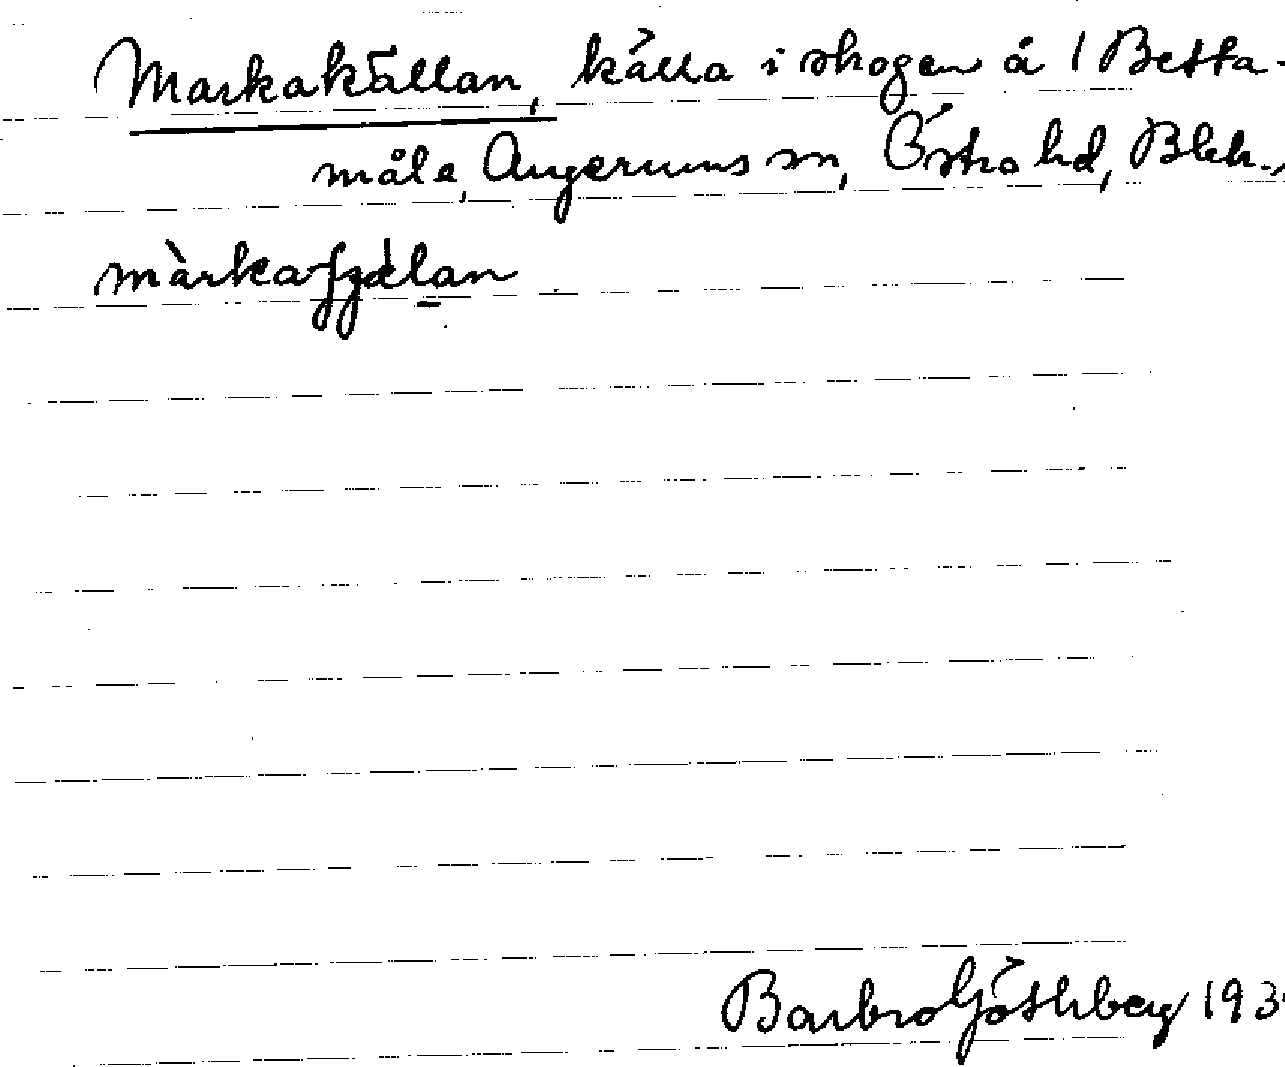 Markakällan, källa i skogen å 1 Betta-
måla, Augerums sn, Östra hd, Blek.,
Barbro Göthberg 193